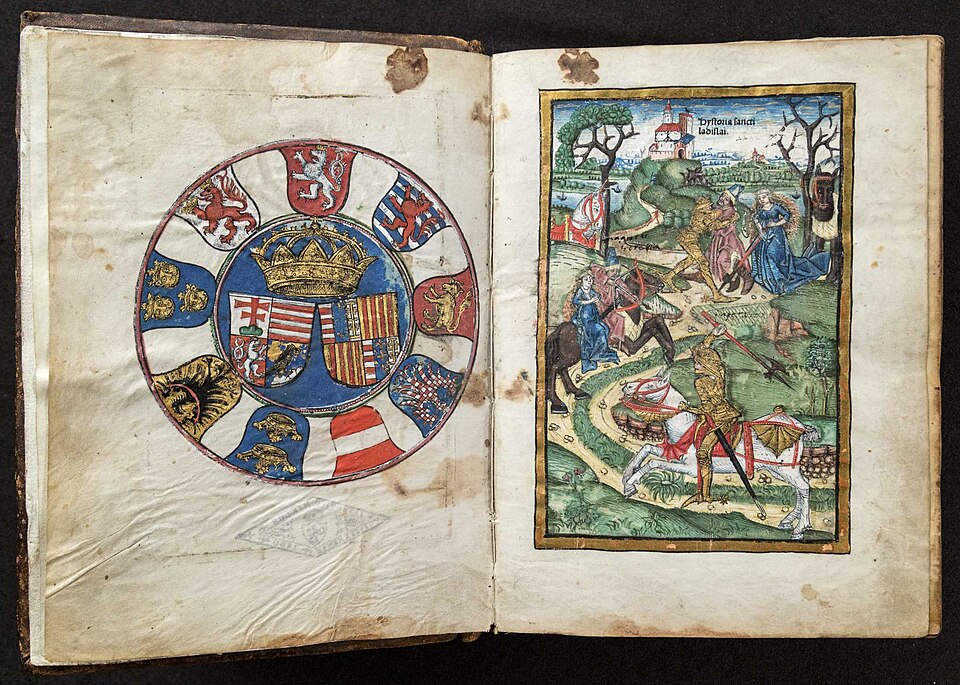 Dystoria sancti
ladislai.